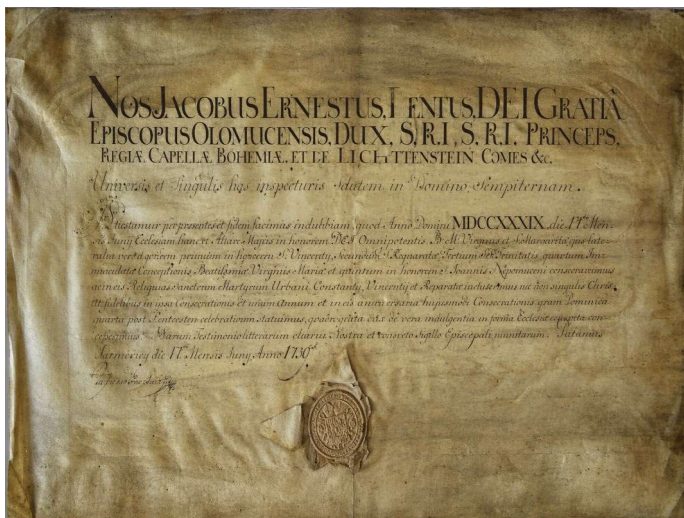 NOS JACOBUS ERNESTUS, DEI GRATIÂ
EPISCOPUS OLOMUCENSIS, DUX, S, R. I, S, R. I, PRINCEPS,
REGIÆ, CAPELLÆ, BOHEMIÆ, ET DE LICHTTENSTEIN COMES &c.
Universis et Singulis has inspecturis Salutem in Domino Sempiternam.
Attestamur per præsentes et fidem facimus indubiam, quod Anno Domini MDCCXXXIX, die 17 Men
Junÿ Ecclesiam hanc et Altare Majus in honorem DEI Omnipotentis B. M. Virginis et S. Margaritæ
in honorem S. Vincentÿ, Secundum S. Reparatæ Tertium SS. Trinitatis quartum Im
maculatæ Conceptionis Beatissimæ Virginis Mariæ et quintum in honorem S. Joannis Nepomuceni consecravimus
ac in eis Reliquias Sanctorum Martyrum Urbani Constantÿ, Vincentÿ et Reparatæ inclusimus nec non singulis Christi
fidelibus in ipsa Consecrationis et unum Annum et in eis anniversaria hujusmodi Consecrationis Dominica
quarta post Pentecosten celebrationem statuimus, quadraginta dies de vera indulgentia in forma Ecclesiæ consueta con
cepimus. Harum Testimonio litterarum Nostra et consveto Sigillo Episcopali munitarum.
die 17 Mensis Junÿ Anno